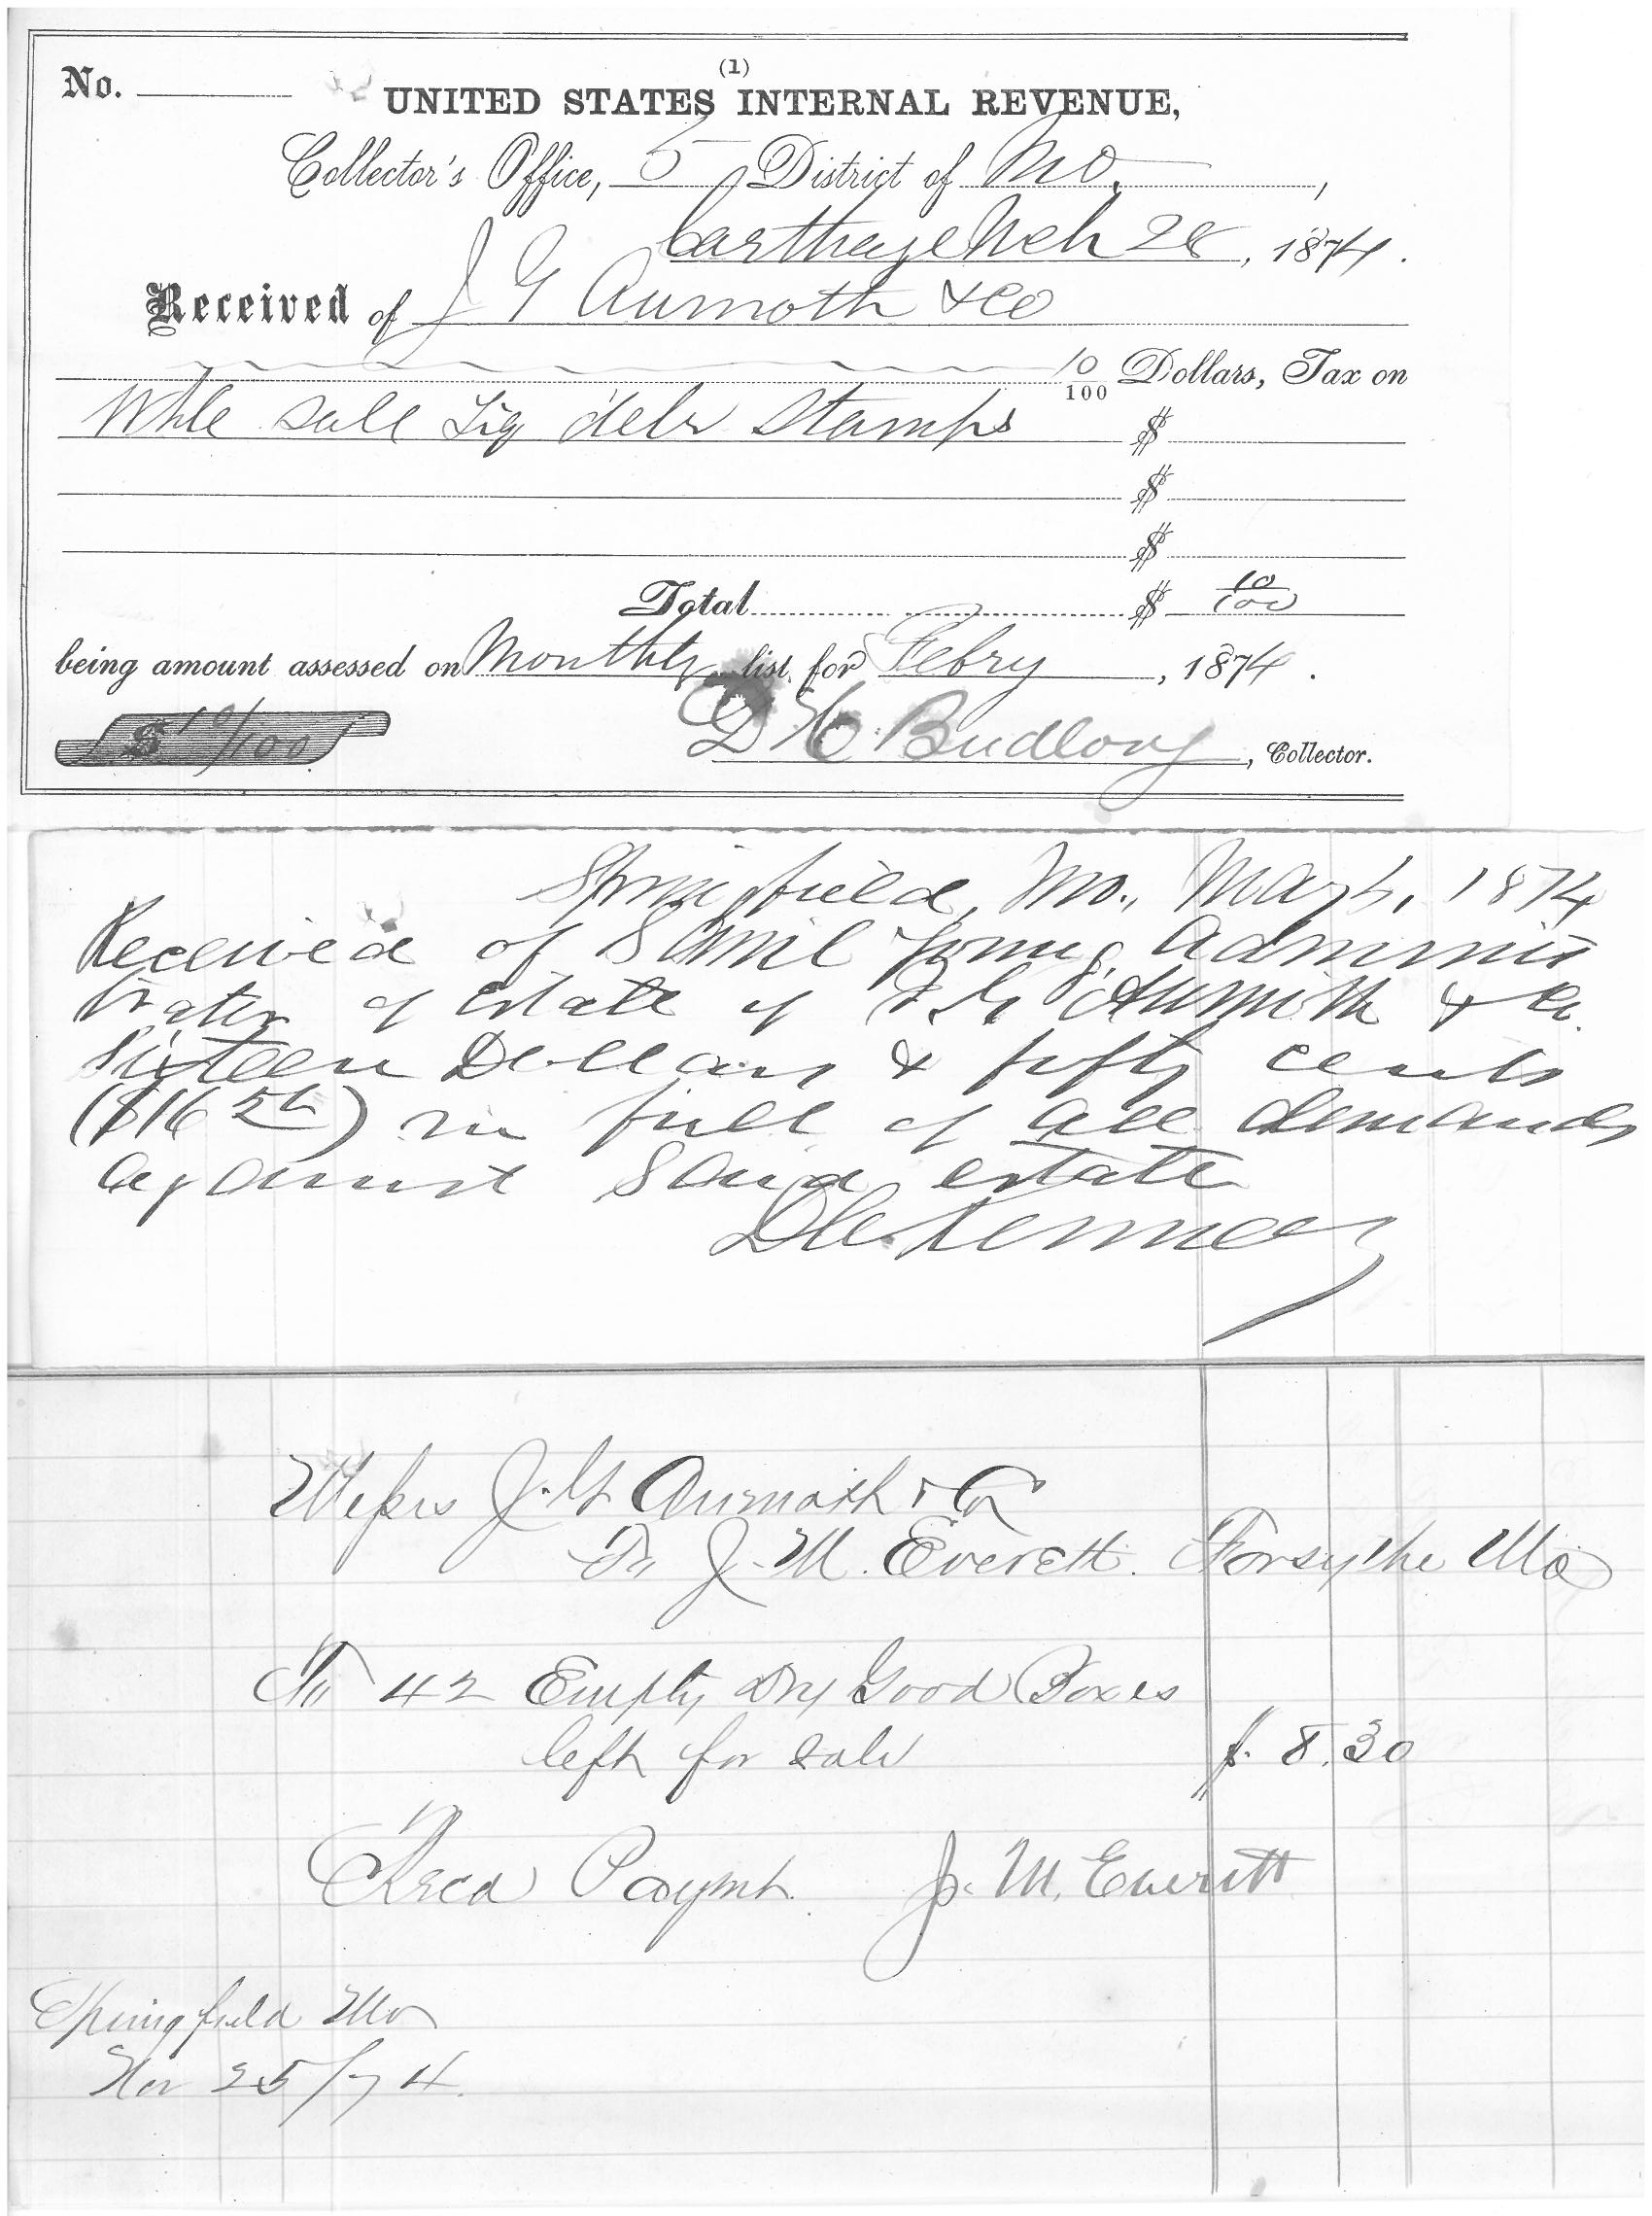 (1)
No.
UNITED STATES INTERNAL REVENUE,
Collector's Office, 5 District of Mo.,
Carthage Mch 28, 1874.
Received of J G Aumoth & Co
10/100 Dollars, Tax on
Whle sale Liq delr Stamps $
$
$
Total $ 10/100
being amount assessed on Monthly list for Febry, 1874.
$ 10/100
Budlong, Collector.
Springfield, Mo., 1874
Received of Saml Young Adminis
trator of Estate of J G Aumoth & Co.
Sixteen Dollars & fifty cents
($16 50) in full of all demands
against said estate
D C Kennedy
Messrs J. G Aumoth & Co
To J. M. Everett. Forsythe Mo
To 42 Empty Dry Good Boxes
left for sale $. 8.30
Recd Paymt. J. M. Everett
Springfield Mo
Nov 25/74.